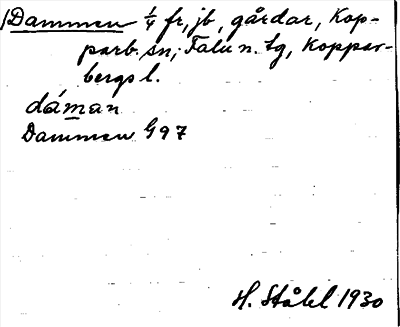 Dammen ¼ fr, jb, gårdar, Kop-
parb. sn; Falu n. tg, Koppar-
bergs l.
dáman
Dammen G97
H. Ståhl 1930